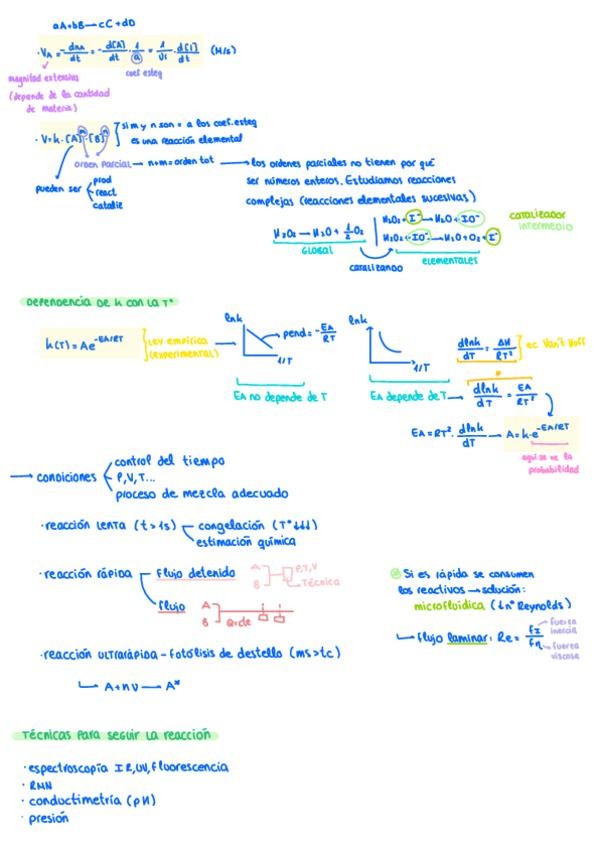 aA+bB—cC+dD
· VA = -dnA/dt = -d[A]/dt · 1/a = 1/νi · d[i]/dt (M/s)
magnitud extensiva
coef esteq
(depende de la cantidad
de materia)
· V=k·[A]^m·[B]^n } si m y n son = a los coef.esteq
es una reacción elemental
orden parcial → n+m=orden tot → los ordenes parciales no tienen por qué
ser números enteros. Estudiamos reacciones
complejas (reacciones elementales sucesivas)
pueden ser
prod
react
cataliz
H2O2 → H2O + 1/2 O2
GLOBAL
H2O2+I⁻→H2O+IO⁻
H2O2+IO⁻→H2O+O2+I⁻
ELEMENTALES
catalizando
catalizador
intermedio
Dependencia de k con la Tª
k(T)=Ae^-EA/RT } Ley empírica
(experimental)
lnk
pend=-EA/RT
1/T
EA no depende de T
lnk
1/T
EA depende de T
dlnk/dT = ΔH/RT² } ec Van't Hoff
dlnk/dT = EA/RT²
EA=RT²·dlnk/dT → A=k·e^-EA/RT
aquí se ve la
probabilidad
→ condiciones
control del tiempo
P,V,T...
proceso de mezcla adecuado
· reacción lenta (t>1s)
congelación (Tª↓↓↓)
estimación química
· reacción rápida
Flujo detenido
A
B
P,T,V
Técnica
flujo
A
B
Q=cte
Si es rápida se consumen
los reactivos → solución:
microfluídica (↓nº Reynolds)
→ Flujo laminar: Re = FI/Fη
fuerza
inercial
fuerza
viscosa
· reacción ultrarápida – Fotólisis de destello (ms>tc)
→ A+hν → A*
Técnicas para seguir la reacción
· espectroscopía IR,UV,fluorescencia
· RMN
· conductimetría (pH)
· presión